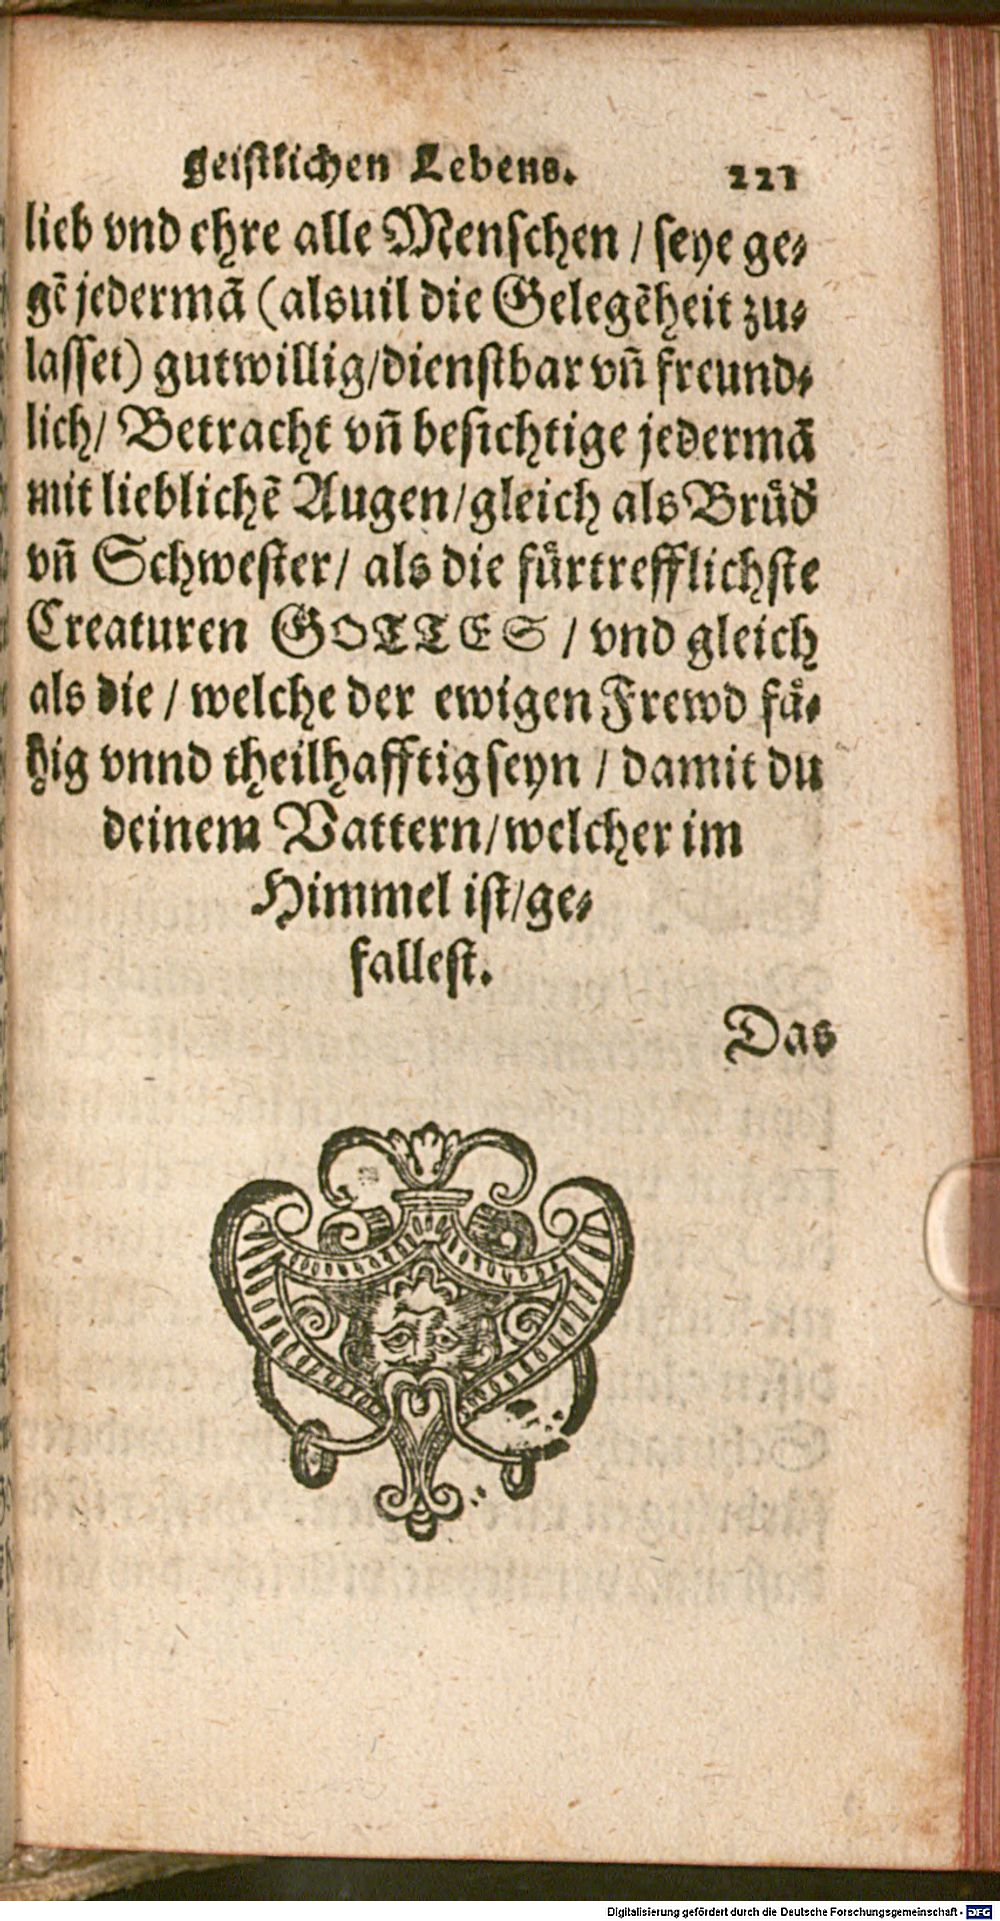 geistlichen Lebens. 221
lieb vnd ehre alle Menschen / seye ge-
gẽ jedermã (alsuil die Gelegẽheit zu-
lasset) gutwillig/dienstbar vñ freund-
lich/ Betracht vñ besichtige jedermã
mit lieblichẽ Augen/gleich als Brůd
vñ Schwester/ als die fůrtrefflichste
Creaturen GOTTES / vnd gleich
als die / welche der ewigen Frewd få-
hig vnnd theilhafftig seyn / damit du
deinem Vattern/welcher im
Himmel ist/ge-
fallest.
Das
Digitalisierung gefördert durch die Deutsche Forschungsgemeinschaft - DFG